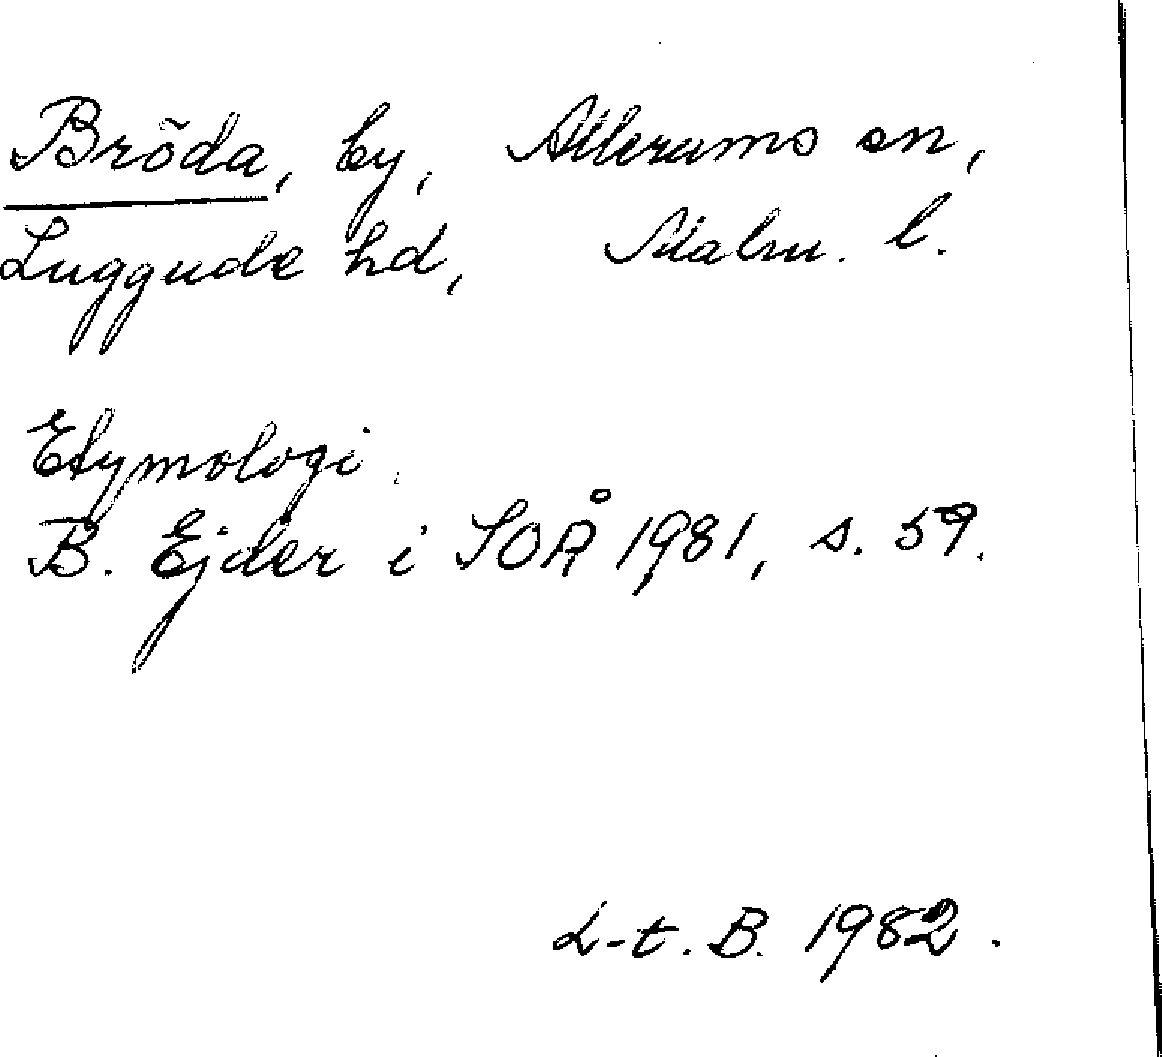 Bröda, by, Allerums sn,
Luggude hd, Malm. l.
Etymologi.
B. Ejder i SOÅ 1981, s. 59.
L-t. B. 1982.